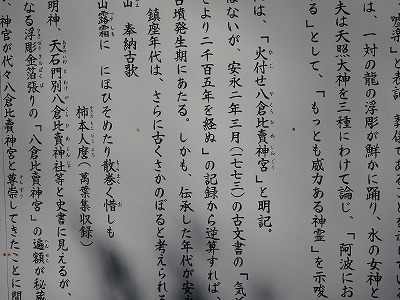 」と表記、
は、一対の龍の浮彫が鮮かに踊り、水の女神と
夫は天照大神を三種にわけて論じ、「阿波にお
る」として、「もっとも威力ある神霊」を示唆
は、「火付せ八倉比賣神宮」と明記。
はないが、安永二年三月(一七七三)の古文書の「気
さより二千百五年を経ぬ」の記録から逆算すれば、
古墳発生期にあたる。しかも、伝承した年代が安
鎮座年代は、さらに古くさかのぼると考えられる
山　奉納古歌
山露霜に　にほひそめたり散巻く惜しも
柿本人麿(萬葉集収録)
明神、天石門別八倉比賣神社等と史書に見えるが、
なる浮彫金箔張りの「八倉比賣神宮」の遍額が秘
、神官が代々八倉比賣神宮と尊崇してきたことに関